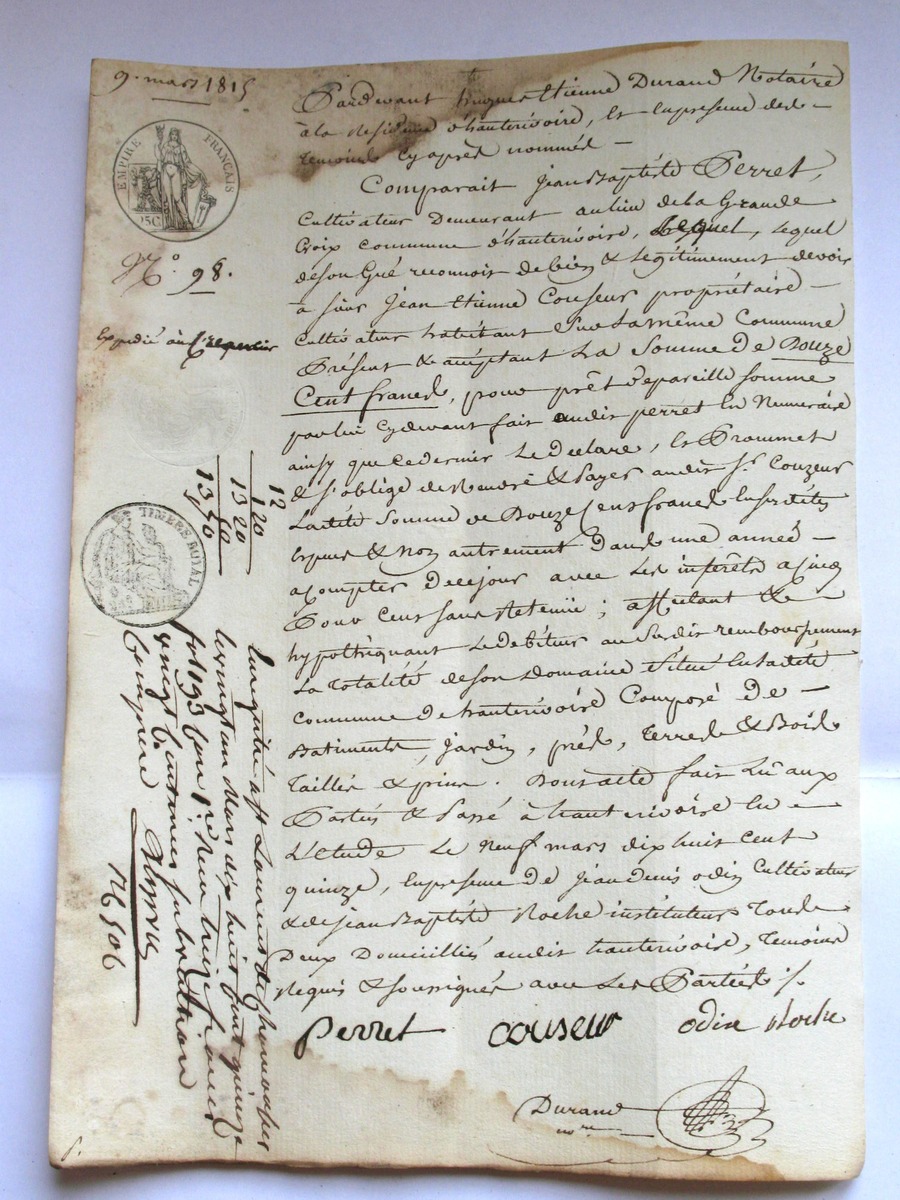 9. mars 1815
EMPIRE FRANÇAIS
25C
N.° 98.
Expedié au Créancier
TIMBRE ROYAL
Pardevant hugues Etienne Durand Notaire
à la Residence d'hauterivoire, Et En presence des
temoins Cy après nommés
Comparait Jean Baptiste Perret,
Cultivateur Demeurant au lieu de la Grande
Croix Commune d'hauterivoire, Lequel
de son Gré reconnoit debien & Legitimement devoir
à sieur Jean Etienne Couseur propriétaire
Cultivateur habitant Sur La même Commune
Présent & acceptant La Somme De Douze
Cent francs, pour prêt de pareille somme
par lui Cydevant fait audit perret En Numeraire
ainsy que Ce dernier Le Déclare, Et Promet
& s'oblige de Rendre & Payer audit Sr. Couzeur
Ladite Somme de Douze Cent francs En susdites
Espèces & Non autrement Dans une année
a Compter De ce jour avec Les interêts a Cinq
Pour Cent sans Retenue; affectant &
hypothéquant Le debiteur au Susdit remboursement
La Totalité de son Domaine Situé En Ladite
Commune de hauterivoire Composé De
Batiments, Jardin, prés, Terres & Bois
Taillis & pins. Dont acte fait Lu aux
Parties & Passé à hauterivoire En
L'Etude Le Neuf mars dix huit cent
quinze, En presence De Jean Denis odin Cultivateur
& de Jean Baptiste Roche instituteur Tous
Deux Domiciliés audit hauterivoire, Temoins
Requis & soussignés avec Les Parties ./.
Perret couseur odin Roche
Durand
nre
12
1 20
13 20
13,50
Enregistré à St Laurent de chamousset
le vingt un Mars dix huit cent quinze
fol 193
vingt centimes subvention
Comprise